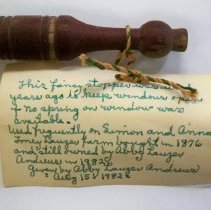 This fancy stopper was used
years ago to keep windows open
if no spring on window was
available.
Used frequently on Simon and Anna
farm bought in 1876
and still owned by Abby
Andrews in 1982
Given by Abby Andrews
Aug 1982